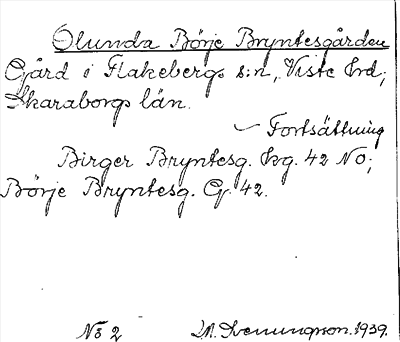 Ölunda Börje Bryntesgården
Gård i Flakebergs s:n, Viste hrd;
Skaraborgs län.
Fortsättning
Birger Bryntesg. hg. 42 NO;
Börje Bryntesg. Cg. 42.
No 2 1939.